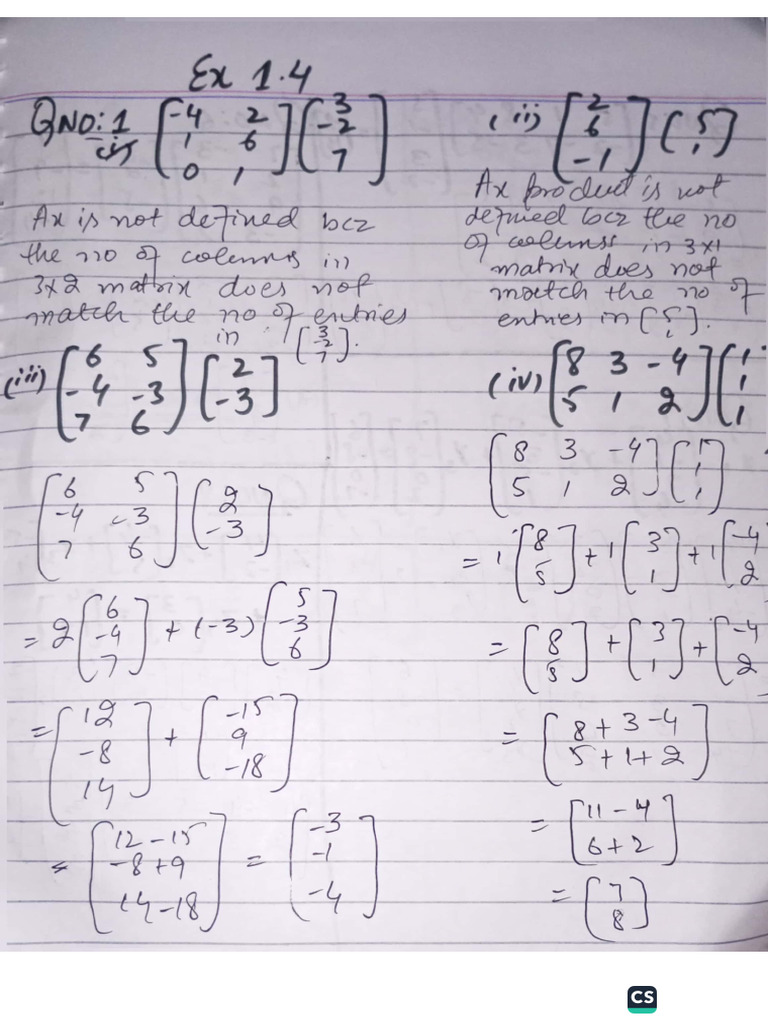 Ex 1.4
QNO:1 (i) [-4 2; 1 6; 0 1] [3; -2; 7]
Ax is not defined bcz
the no of columns in
3x2 matrix does not
match the no of entries
in [3; -2; 7].
(ii) [2; 6; -1] [5; 1]
Ax product is not
defined bcz the no
of columns in 3x1
matrix does not
match the no of
entries in [5; 1].
(iii) [6 5; -4 -3; 7 6] [2; -3]
[6 5; -4 -3; 7 6] [2; -3]
= 2 [6; -4; 7] + (-3) [5; -3; 6]
= [12; -8; 14] + [-15; 9; -18]
= [12-15; -8+9; 14-18] = [-3; -1; -4]
(iv) [8 3 -4; 5 1 2] [1; 1; 1]
[8 3 -4; 5 1 2] [1; 1; 1]
= 1 [8; 5] + 1 [3; 1] + 1 [-4; 2]
= [8; 5] + [3; 1] + [-4; 2]
= [8+3-4; 5+1+2]
= [11-4; 6+2]
= [7; 8]
CS